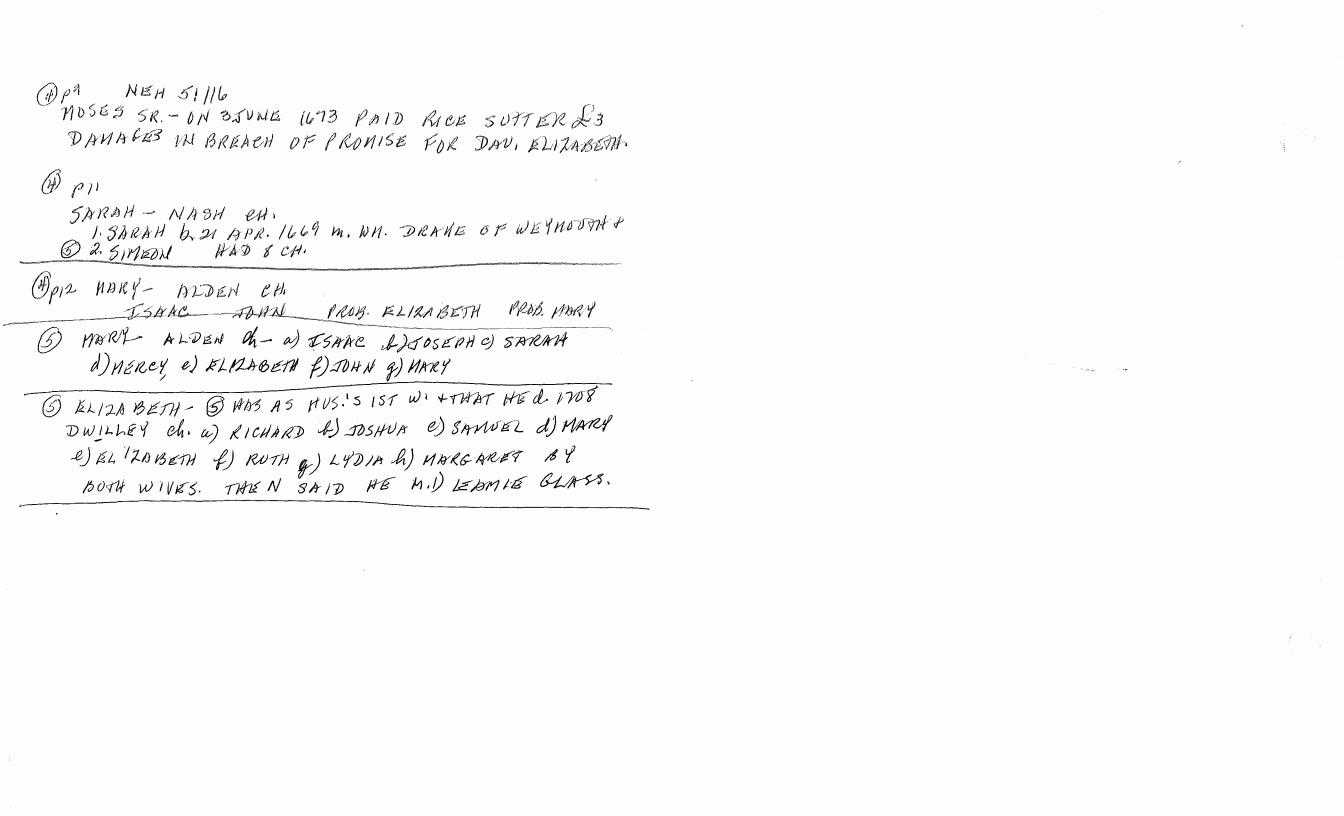 ④ P9 NEH 51/16
MOSES SR. - ON 3 JUNE 1673 PAID RICE SUTTER £3
DAMAGES IN BREACH OF PROMISE FOR DAU. ELIZABETH.
④ P11
SARAH - NASH CH.
1. SARAH b. 21 APR. 1669 m. WM. DRAKE OF WEYMOUTH +
⑤ 2. SIMEON HAD 8 CH.
④ P12 MARY - ALDEN CH.
ISAAC JOHN PROB. ELIZABETH PROB. MARY
⑤ MARY - ALDEN ch - a) ISAAC b) JOSEPH c) SARAH
d) MERCY, e) ELIZABETH f) JOHN g) MARY
⑤ ELIZABETH - ⑤ HAS AS HUS.'S 1ST W. + THAT HE d. 1708
DWILLEY ch. a) RICHARD b) JOSHUA c) SAMUEL d) MARY
e) ELIZABETH f) RUTH g) LYDIA h) MARGARET BY
BOTH WIVES. THEN SAID HE M. 1) GLASS.